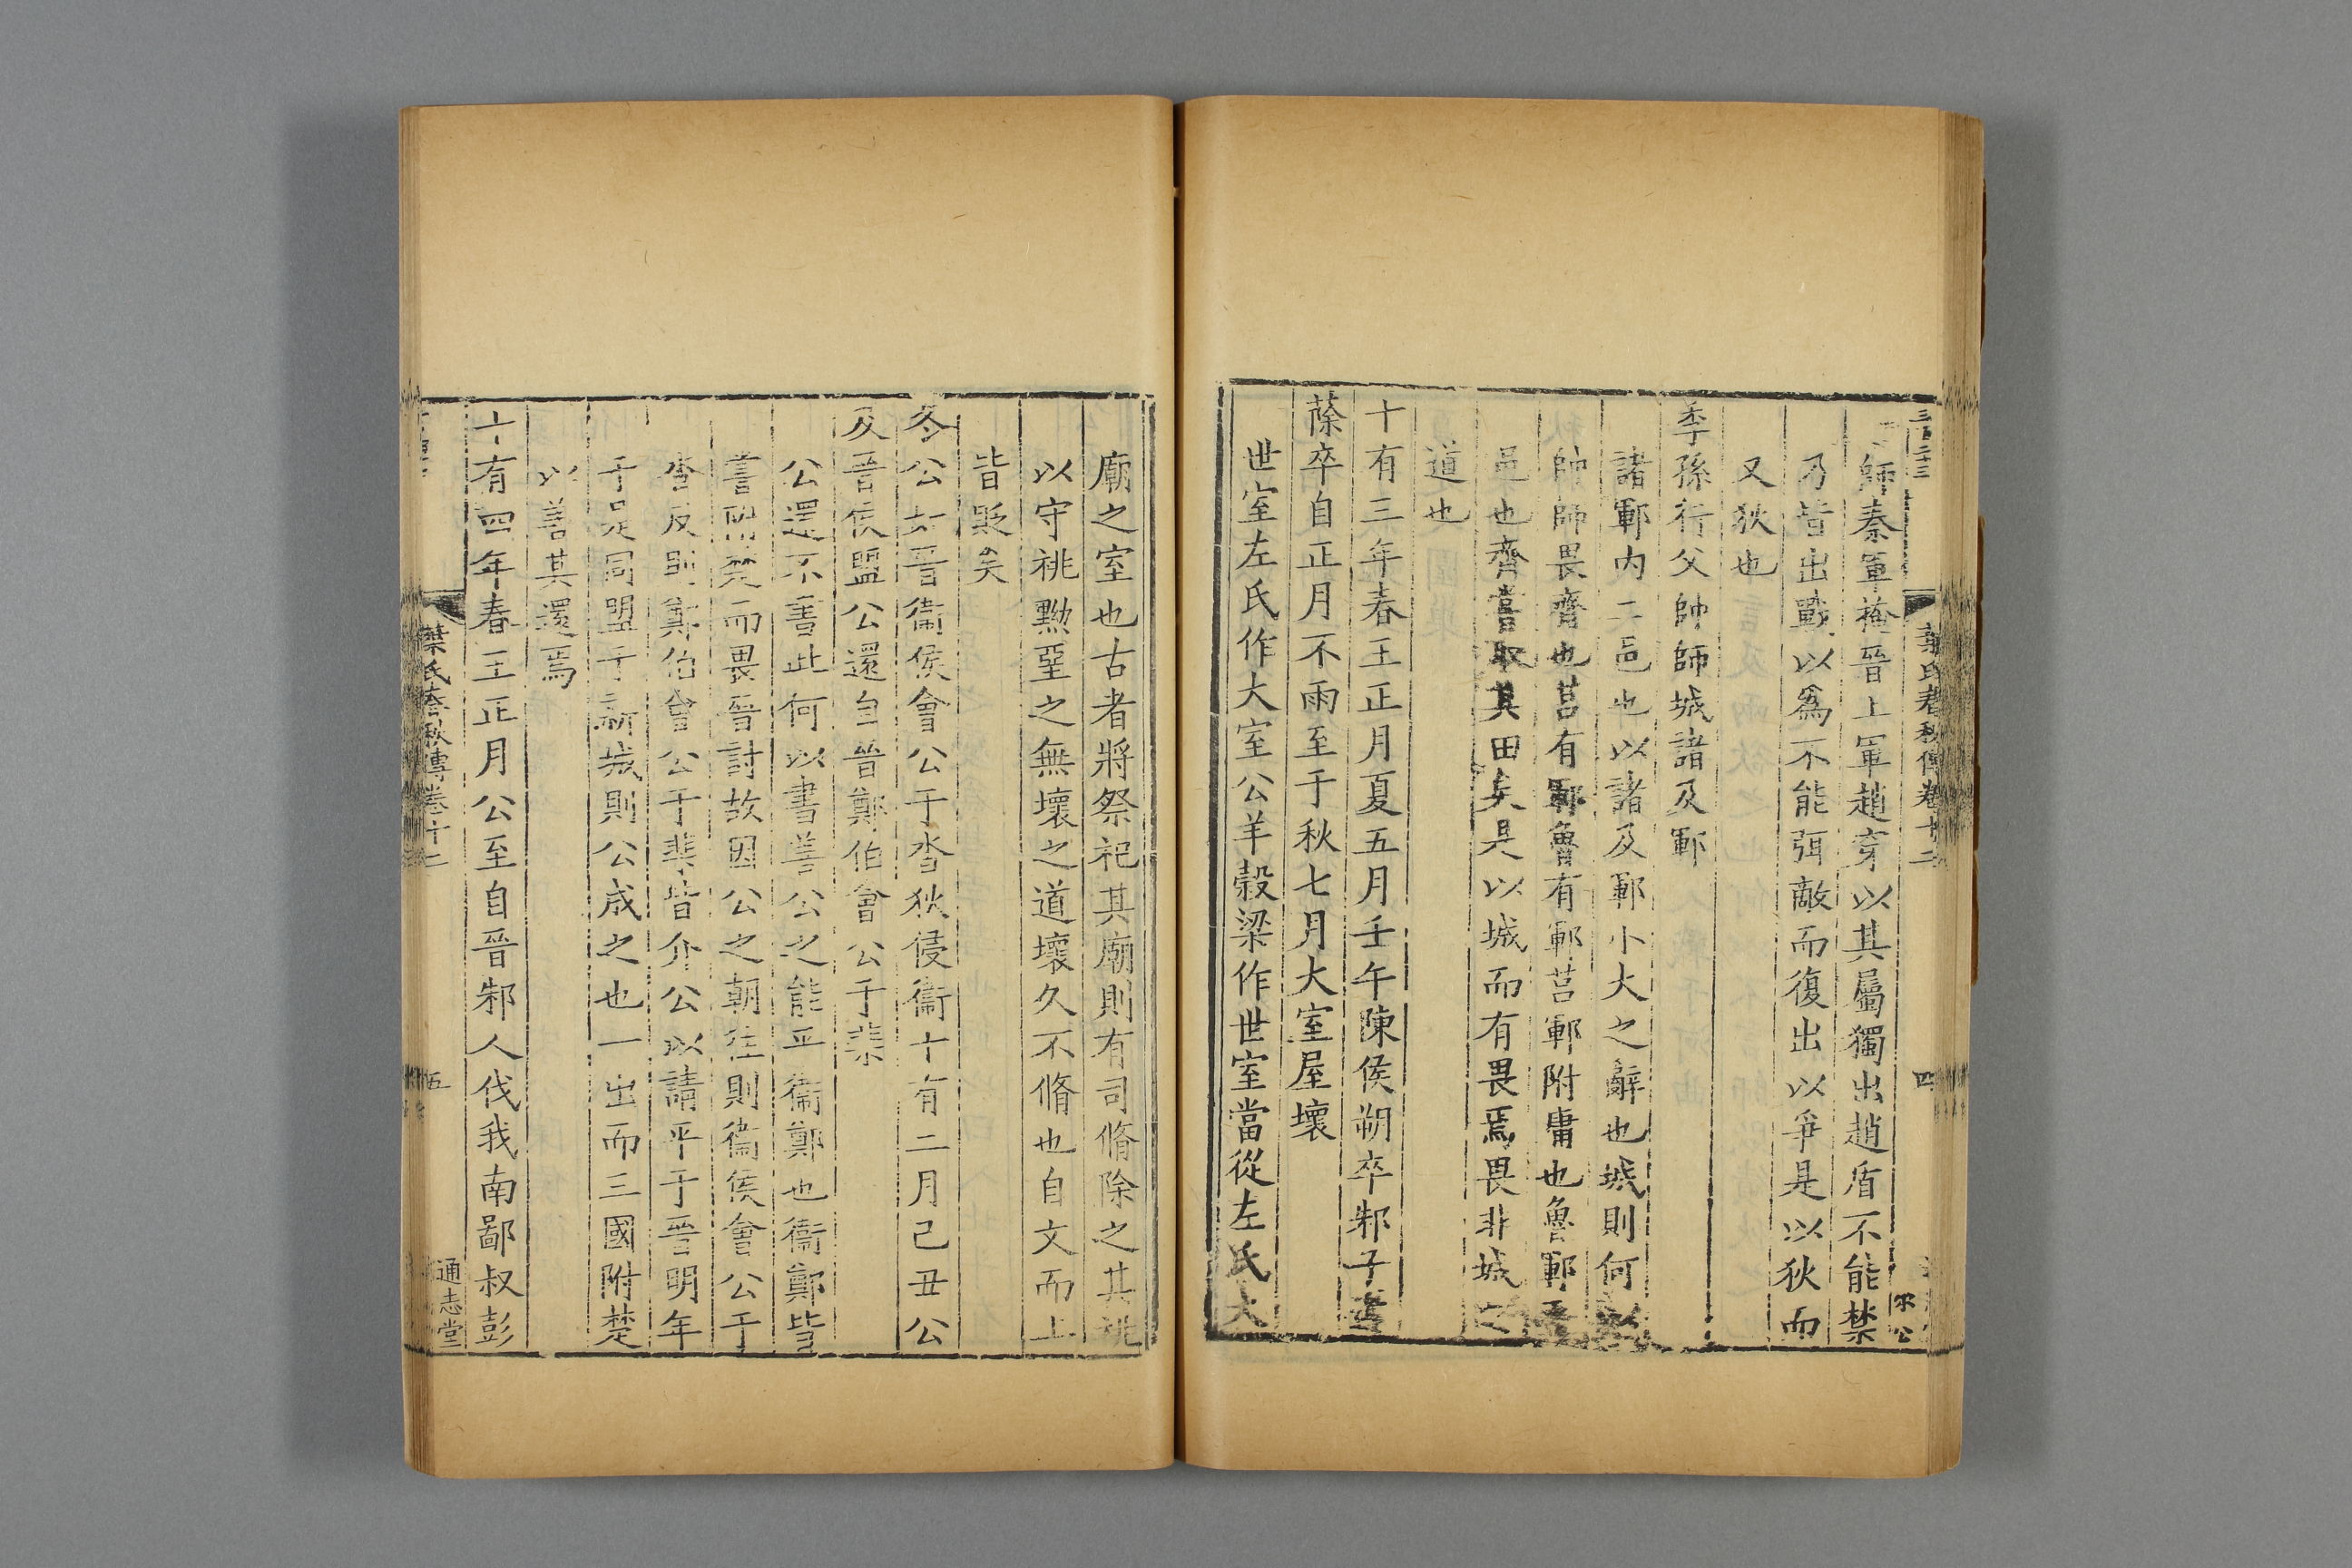 三百二十三
葉氏春秋傳卷十二
四
師秦軍掩晉上軍趙穿以其屬獨出趙盾不能禁
乃皆出戰以爲不能弭敵而復出以爭是以狄而
又狄也
季孫行父帥師城諸及鄆
諸鄆内二邑也以諸及鄆小大之辭也城則何以
帥師畏齊也莒有鄆魯有鄆莒鄆附庸也魯鄆
邑也齊嘗取其田矣是以城而有畏焉畏非城之
道也
十有三年春王正月夏五月壬午陳侯朔卒邾子蘧
蒢卒自正月不雨至于秋七月大室屋壞
世室左氏作大室公羊榖梁作世室當從左氏大
廟之室也古者將祭祀其廟則有司脩除之其祧
以守祧黝堊之無壞之道壞久不脩也自文而上
皆貶矣
冬公如晉衞侯會公于沓狄侵衞十有二月己丑公
及晉侯盟公還自晉鄭伯會公于棐
公還不書此何以書善公之能平衞鄭也衞鄭皆
嘗附楚而畏晉討故因公之朝往則衞侯會公于
沓反則鄭伯會公于棐皆介公以請平于晉明年
于是同盟于新城則公成之也一出而三國附楚
以善其還焉
十有四年春王正月公至自晉邾人伐我南鄙叔彭
葉氏春秋傳卷十二
五
通志堂